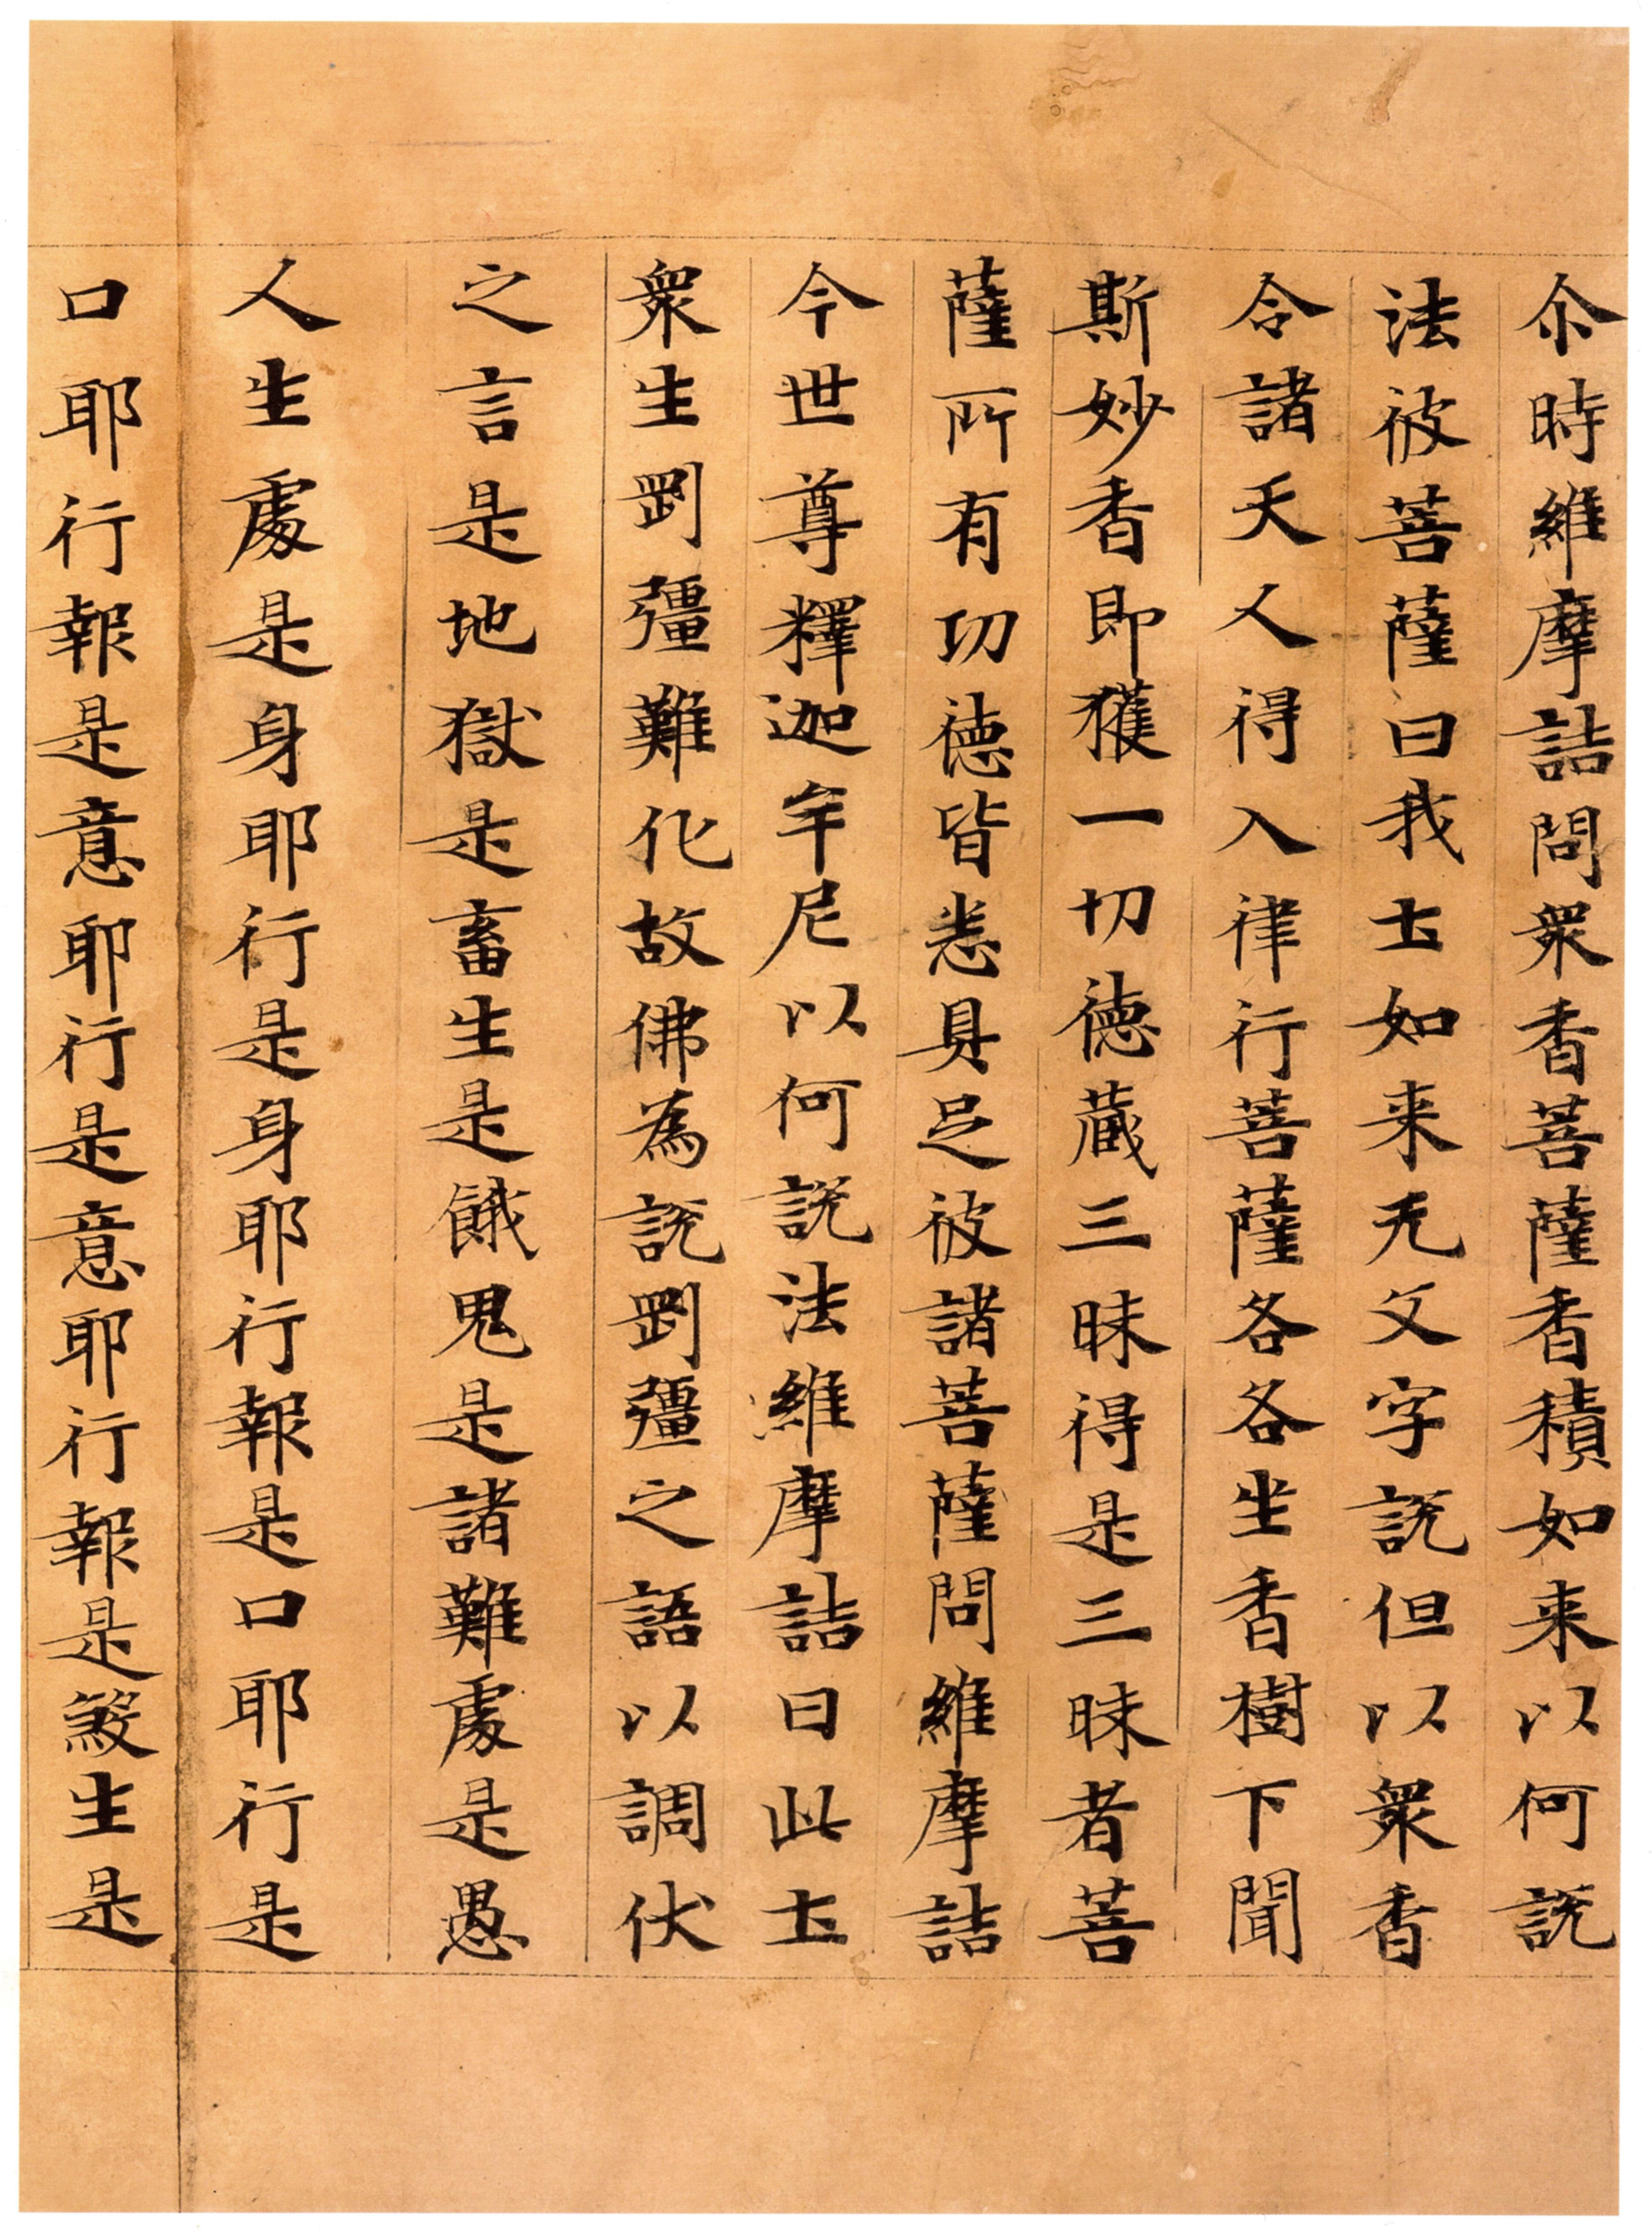 尒時維摩詰問衆香菩薩香積如来以何説
法彼菩薩曰我土如来无文字説但以衆香
令諸天人得入律行菩薩各各坐香樹下聞
斯妙香即獲一切德藏三昧得是三昧者菩
薩所有功德皆悉具足彼諸菩薩問維摩詰
今世尊釋迦牟尼以何説法維摩詰曰此土
衆生剛彊難化故佛為説剛彊之語以調伏
之言是地獄是畜生是餓鬼是諸難處是愚
人生處是身耶行是身耶行報是口耶行是
口耶行報是意耶行是意耶行報是煞生是